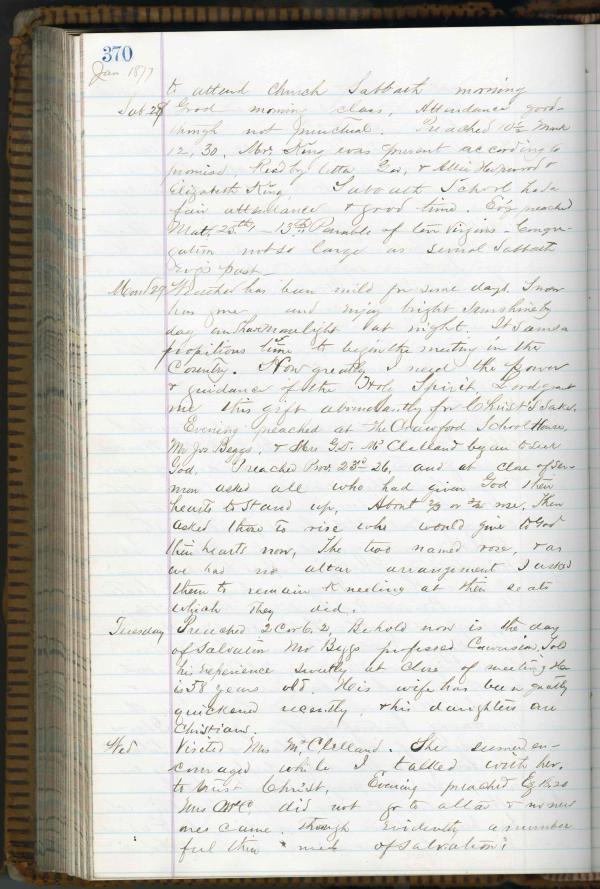 370
Jan. 1877
to attend church Sabbath morning
Sab 28 Good morning class, Attendance good
though not punctual. Preached 10½ Mark
12, 30. Mrs King was present according to
promised, Read by Etta Gee, & Allen &
Elizabeth King. Sabbath School had a
fair attendance & good time. Ev'g preached
Mat. 25th 1–13th Parable of ten virgins – Congre-
gation not so large as several Sabbath
Ev'gs past –
Mon 29 Weather has been mild for some days. Snow
has gone and enjoy bright Sunshine by
day and have moonlight at night. It seems a
propitious time to begin the meeting in the
Country. How greatly I need the Power
& guidance of the Holy Spirit. Lord grant
me this gift abundantly for Christ's sake.
Evening preached at the Crawford School House,
Mr Jos Beggs, & Mrs G.D. McClelland began to seek
God. Preached Prov. 23rd 26, and at close of ser-
mon asked all who had given God their
hearts to stand up, About ⅔ or ¾ rose, then
asked those to rise who would give to God
their hearts now, The two named rose, & as
we had no altar arrangement I asked
them to remain kneeling at their seats
which they did.
Tuesday Preached 2 Cor 6. 2 Behold now is the day
of salvation Mr Beggs professed Conversion, Told
his experience sweetly at close of meeting. He
is 58 years old. His wife has been greatly
quickened recently, & his daughters are
Christians.
Wed Visited Mrs McClelland. She seemed en-
couraged while I talked with her,
to trust Christ, Evening preached 18.20
Mrs McC, did not go to altar & no new
ones came, though evidently a number
feel their need of salvation!